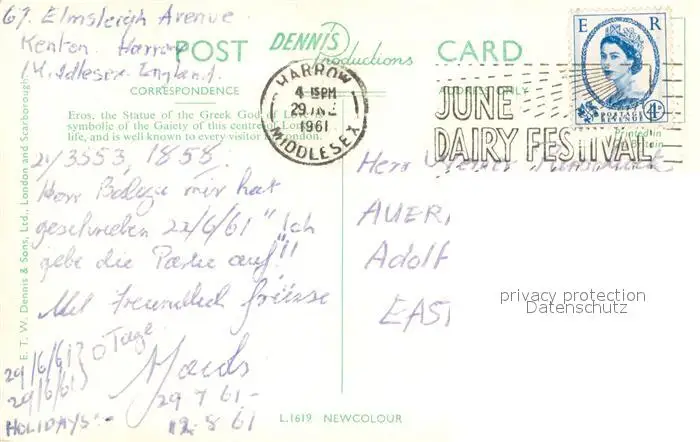 67. Elmsleigh Avenue
Kenton. Harrow
Middlesex. England.
POST CARD
DENNIS
Productions
CORRESPONDENCE
ADDRESS ONLY
Eros, the Statue of the Greek God of
symbolic of the Gaiety of this centre of
life, and is well known to every visitor
HARROW
4-15PM
29 JNE
1961
MIDDLESEX
JUNE
DAIRY FESTIVAL
E R
POSTAGE
REVENUE
4D
Printed in
Britain
21/3553, 1858.
Herr mir hat
geschrieben 22/6/61 "Ich
gebe die Partie auf"!!
Mit Freundlich grüsse
29/6/61 } 0 Tage
29/6/61
HOLIDAYS:-
29 7 61-
12.8 61
Herr
AUER
Adolf
EAST
privacy protection
Datenschutz
E. T. W. Dennis & Sons, Ltd., London and Scarborough
L.1619 NEWCOLOUR